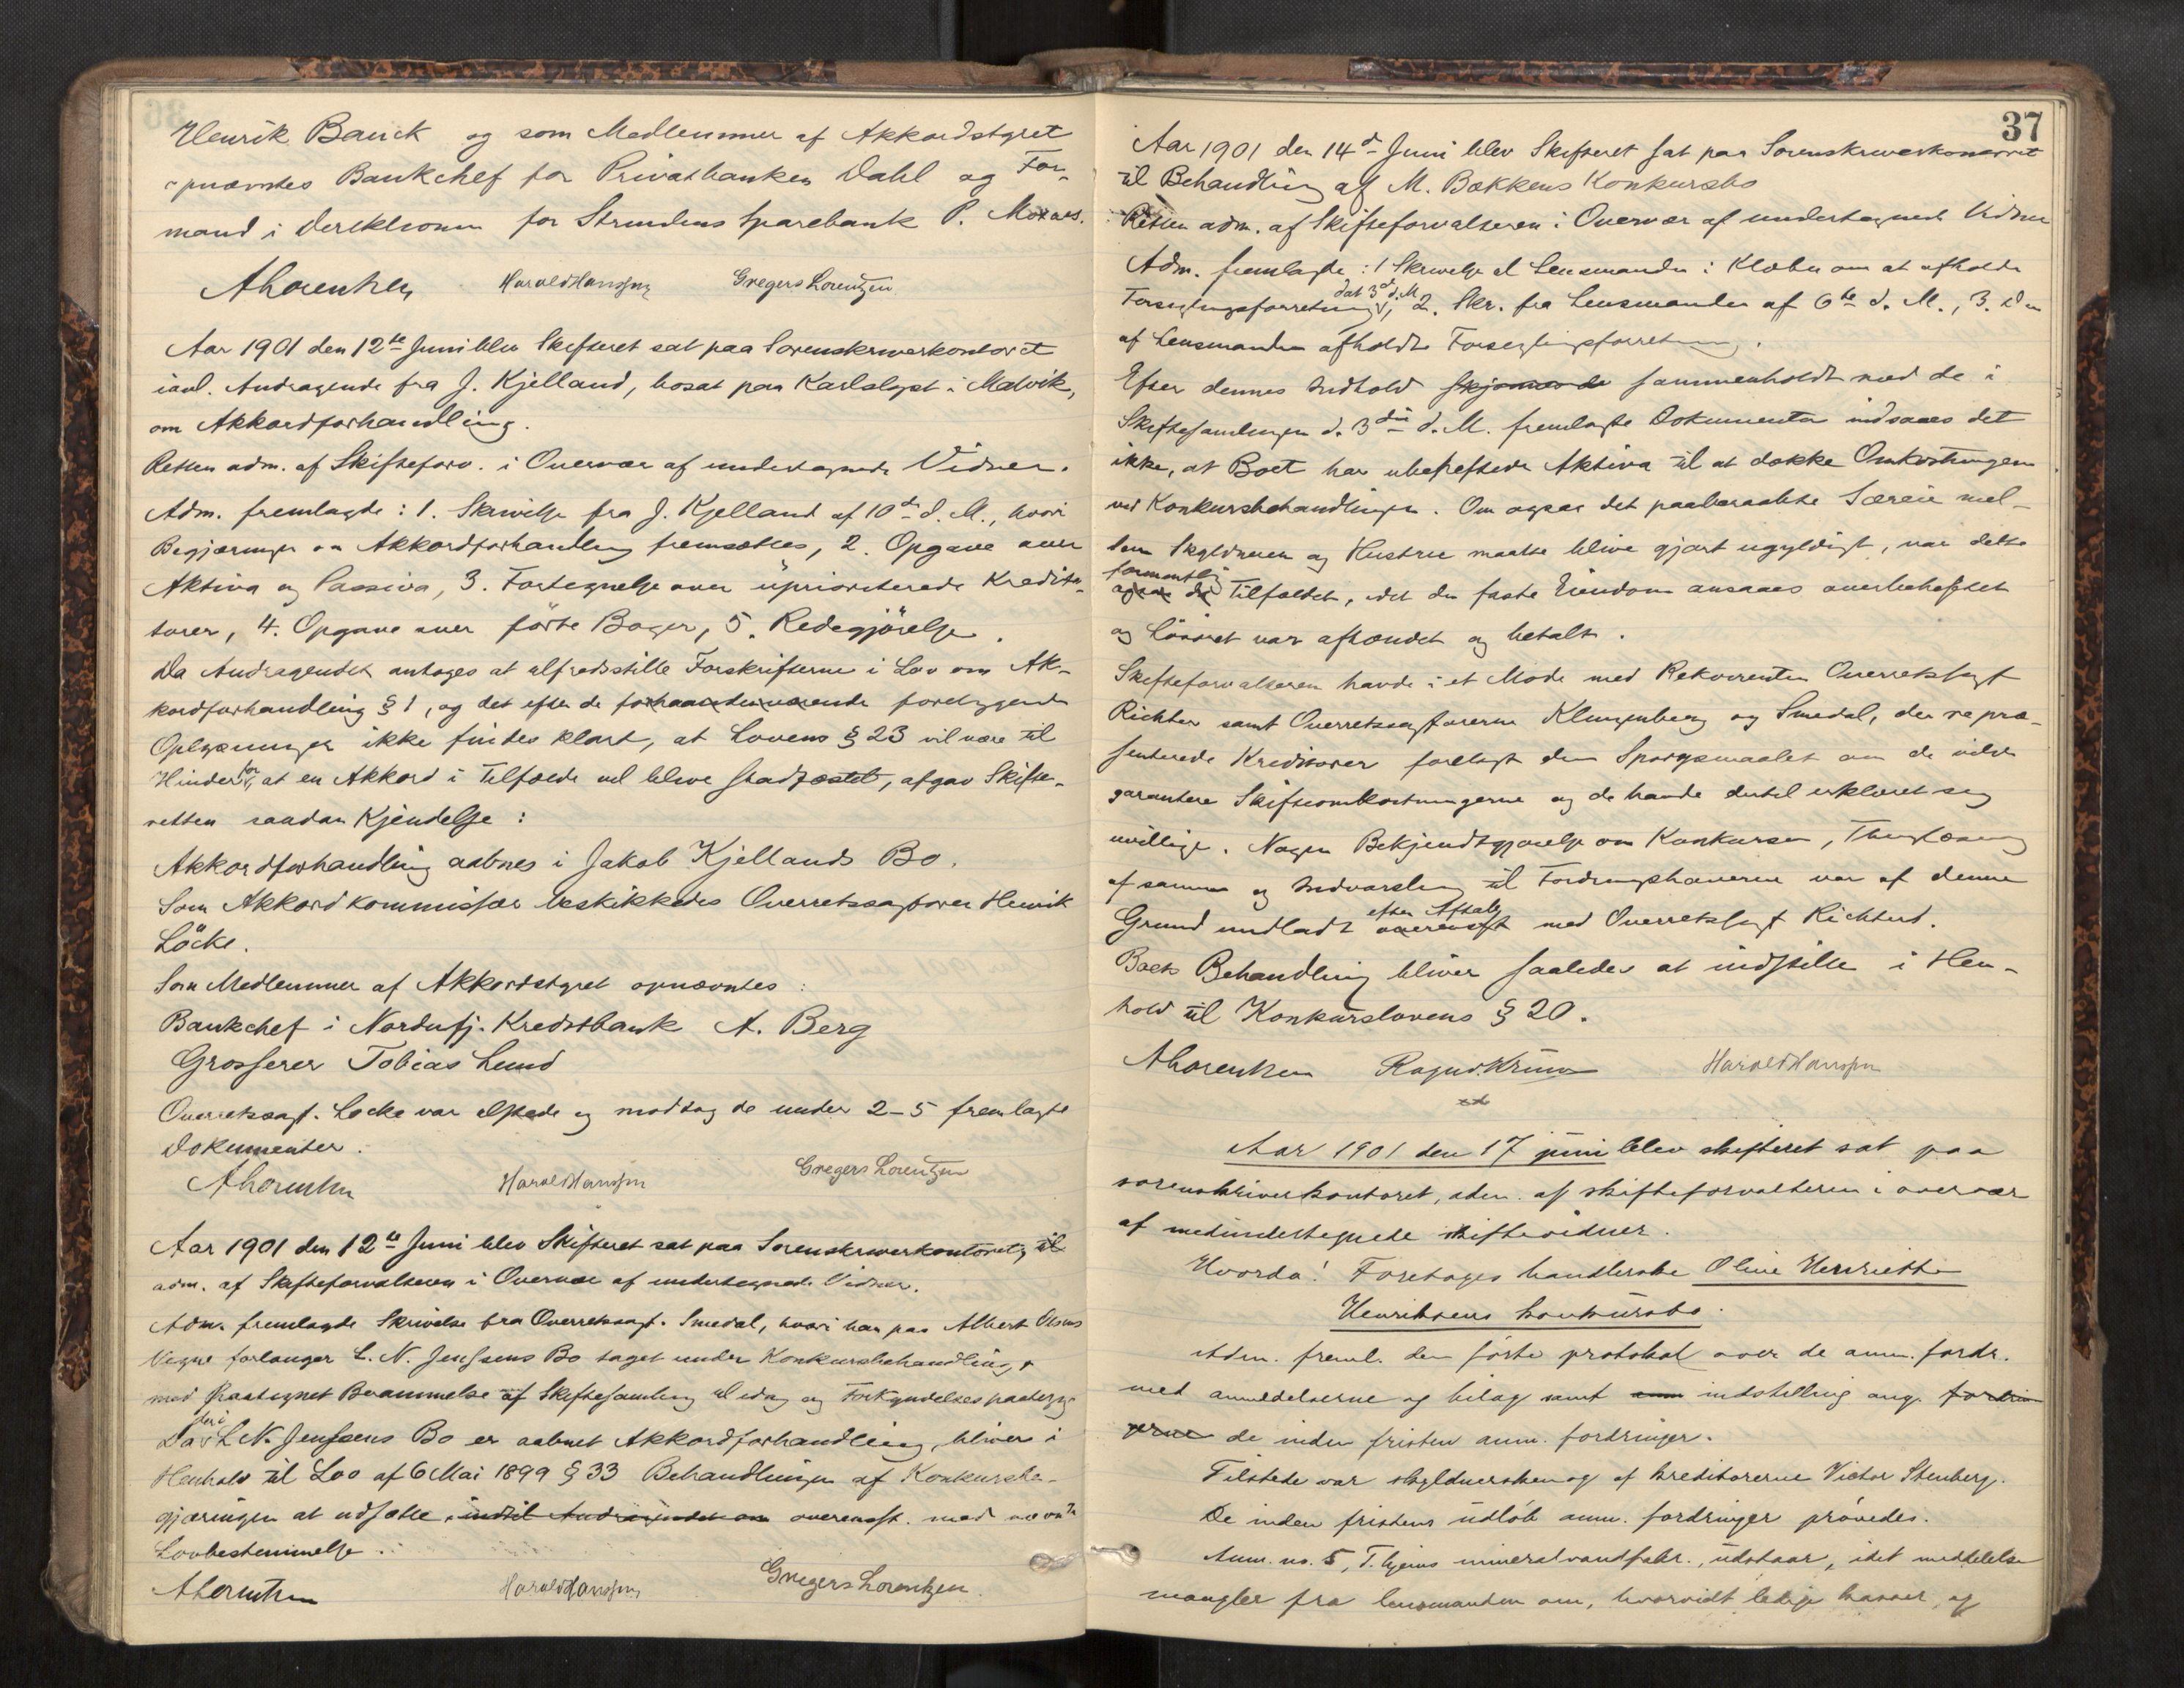 Henrik Bauck og som Medlemmer af Akkordstyret
opnævntes Bankchef for Privatbanken Dahl og For-
mand i Direktionen for Strindens Sparebank P. Moxnes.
ALorentzen Harald Hanssen Gregers Lorentzen
Aar 1901 den 12te Juni blev Skifteret sat paa Sorenskriverkontoret
i anl. Andragende fra J. Kjelland, bosat paa Karlslyst i Malvik,
om Akkordforhandling.
Retten adm. af Skifteforv. i Overvær af undertegnede Vidner.
Adm. fremlagde: 1. Skrivelse fra J. Kjelland af 10de d. M., hvori
Begjæringen om Akkordforhandling fremsættes, 2. Opgave over
Aktiva og Passiva, 3. Fortegnelse over uprioriterede Kredito-
torer, 4. Opgave over førte Bøger, 5. Redegjörelse.
Da Andragendet antages at tilfredsstille Forskrifterne i Lov om Ak-
kordforhandling § 1, og det efter de forhaandenværende foreliggende
Oplysninger ikke findes klart, at Lovens § 23 vil være til
Hinder for, at en Akkord i Tilfælde vil blive stadfæstet, afgav Skifte-
retten saadan Kjendelse:
Akkordforhandling aabnes i Jakob Kjellands Bo.
Som Akkordkommissær beskikkedes Overretssagfører Henrik
Löcke.
Som Medlemmer af Akkordstyret opnævntes:
Bankchef i Nordenfj. Kreditbank A. Berg
Grosserer Tobias Lund
Overretssagf. Locke var tilstede og modtog de under 2-5 fremlagte
Dokumenter.
ALorentzen Harald Hanssen Gregers Lorentzen
Aar 1901 den 12te Juni blev Skifteret sat paa Sorenskriverkontoret, til
adm. af Skifteforvalteren i Overvær af undertegnede Vidner.
Adm. fremlagde Skrivelse fra Overretssagf. Smedal, hvori han paa Albert Olsens
Vegne forlanger L. N. Jenssens Bo taget under Konkursbehandling,
med paategnet Berammelse af Skiftesamling til idag og Forkyndelsespaategn.
Da der i L. N. Jenssens Bo er aabnet Akkordforhandling, bliver i
Henhold til Lov af 6 Mai 1899 § 33 Behandlingen af Konkursbe-
gjæringen at udsætte, indtil Andragendet om overensst. med nævnte
Lovbestemmelse.
ALorentzen Harald Hanssen Gregers Lorentzen.
37
Aar 1901 den 14de Juni blev Skifteret sat paa Sorenskriverkontoret
til Behandling af M. Bækkens Konkursbo
Retten adm. af Skifteforvalteren i Overvær af undertegnede Vidner
Adm. fremlagde: 1 Skrivelse til Lensmanden i Klæbu om at afholde
Forseglingsforretning dat 3de d. M., 2. Skr. fra Lensmanden af 6te d. M., 3. Den
af Lensmanden afholdte Forseglingsforretning.
Efter dennes Indhold skjønnede sammenholdt med de i
Skiftesamlingen d. 3die d. M. fremlagte Dokumenter indsaaes det
ikke, at Boet har ubeheftede Aktiva til at dække Omkostningerne
ved Konkursbehandlingen. Om ogsaa det paaberaabte Særeie mel-
lem Skyldneren og Hustru maatte blive gjort ugyldigt, var dette
formentlig
ogsaa da Tilfældet, idet den faste Eiendom ansaaes overbeheftet
og Løsøret var afhændet og betalt.
Skifteforvalteren havde i et Møde med Rekvirenten Overretssagf
Richter samt Overretssagførerne Klingenberg og Smedal, der repræ-
senterede Kreditorer forelagt dem Spørgsmaalet om de vilde
garantere Skifteomkostningerne og de havde dertil erklæret sig
uvillige. Nogen Bekjendtgjørelse om Konkursen, Thinglæsning
af samme og Indvarsling til Fordringshaverne var af denne
Grund undladt efter Aftale overensst med Overretssagf Richter.
Boets Behandling bliver saaledes at indstille i Hen-
hold til Konkurslovens § 20.
ALorentzen Harald Hanssen
Aar 1901 den 17 juni blev skifteret sat paa
sorenskriverkontoret, adm. af skifteforvalteren i overvær
af medundertegnede skiftevidner.
Hvorda! Foretoges handlerske Oline Henriette
Henriksens konkursbo.
Adm. freml. den førte protokol over de anm. fordr.
med anmeldelserne og bilag samt indstilling ang. fordrin
gerne de inden fristen anm. fordringer.
Tilstede var skyldnersken og af kreditorerne Victor Stenberg.
De inden fristens udløb anm. fordringer prøvedes.
Anm. no. 5, T. Hjems mineralvandfabr., udstaar, idet meddelelse
mangler fra lensmanden om, hvorvidt ledige kasser, og